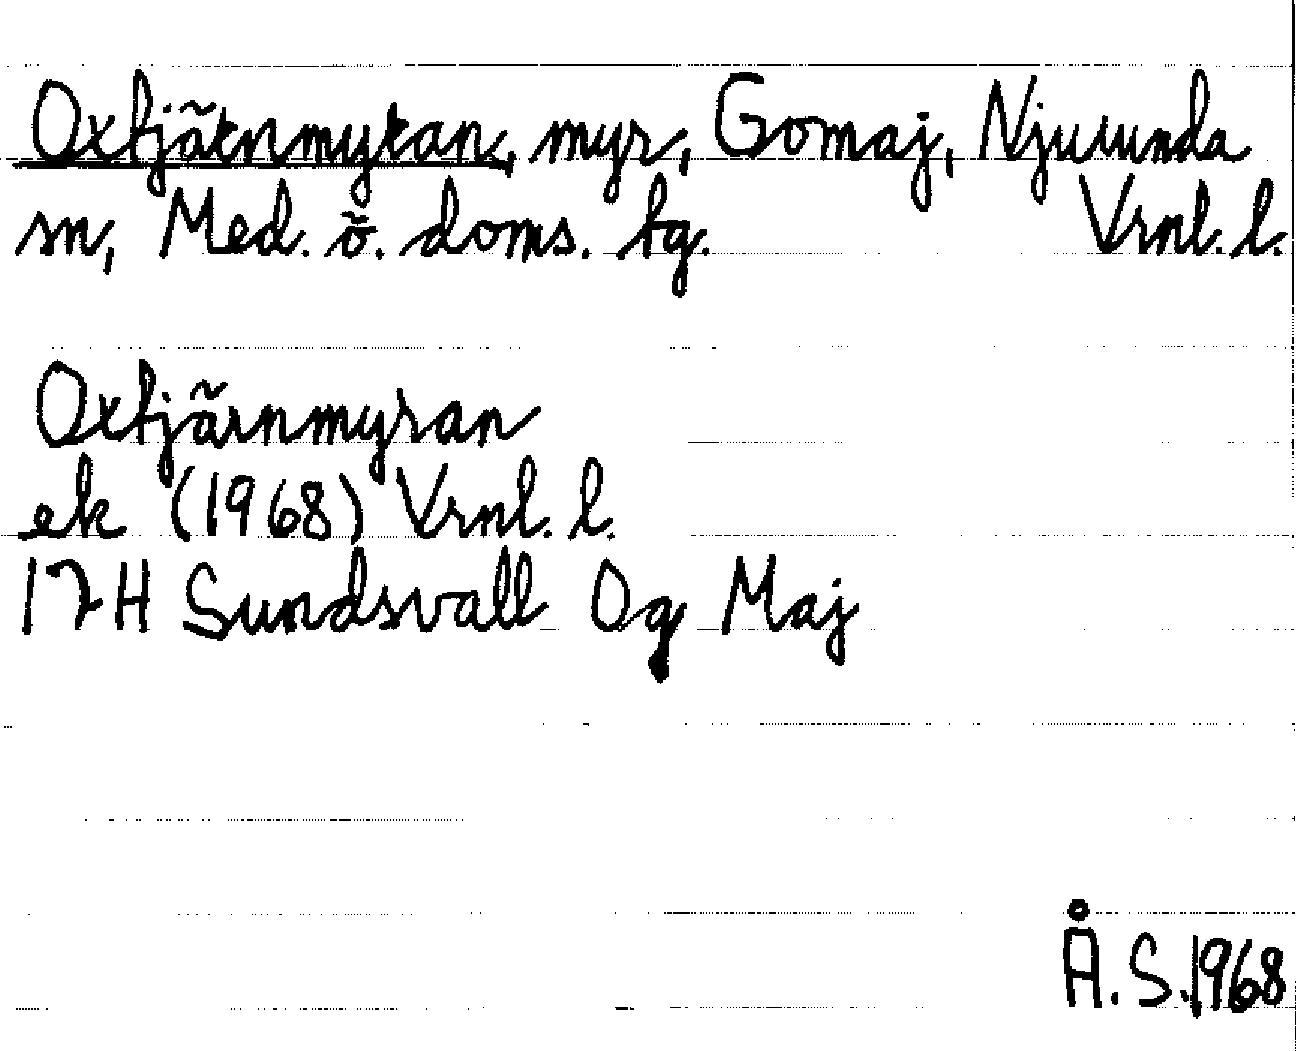 Oxtjärnmyran, myr, Gomaj, Njurunda
sn, Med. ö. doms. tg. Vrnl. l.
Oxtjärnmyran
ek (1968) Vrnl. l.
17H Sundsvall Og Maj
Å.S.1968